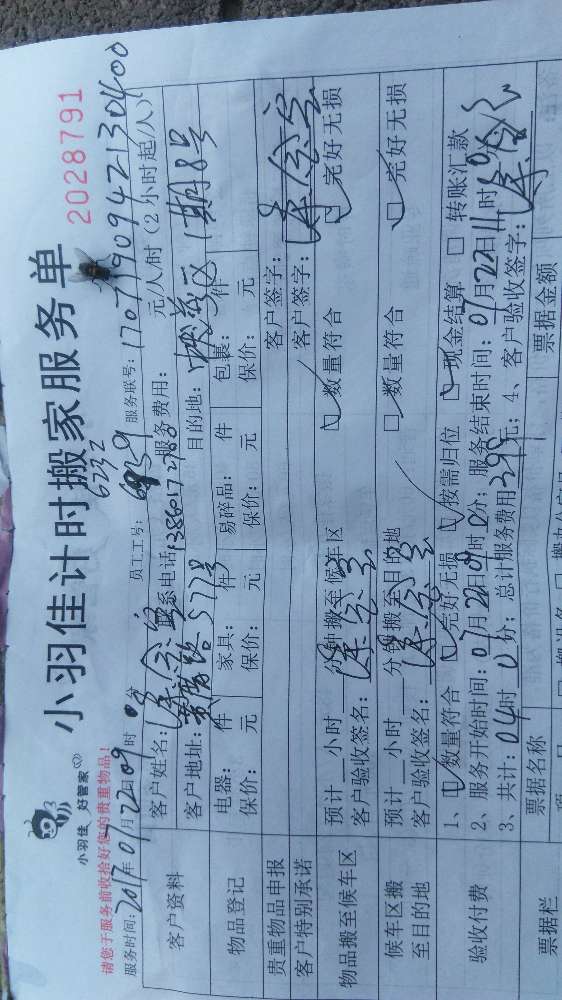 小羽佳计时搬家服务单
2028791
小羽佳 好管家
请您于服务前收拾好您的贵重物品!
6232
服务时间: 2017年07月22日09时0分 员工工号: 6959 服务联号: 170719094213 0400
客户资料
客户姓名: 联系电话: 13860172788 服务费用: 元/人/时(2小时起/人)
客户地址: 577号 目的地: 1期8号
物品登记
电器: 件 家具: 件 易碎品: 件 包裹: 件
保价: 元 保价: 元 保价: 元 保价: 元
贵重物品申报 客户签字:
客户特别承诺 客户签字:
物品搬至候车区
预计 小时 分钟搬至候车区 数量符合 完好无损
客户验收签名:
候车区搬至目的地
预计 小时 分钟搬至目的地 数量符合 完好无损
客户验收签名:
验收付费
1、 数量符合 完好无损 按需归位 现金结算 转账汇款
2、服务开始时间: 07月22日09时0分; 服务结束时间: 07月22日11时0分
3、共计: 04时0分; 总计服务费用398元; 4、客户验收签字:
票据栏 票据名称 票据金额